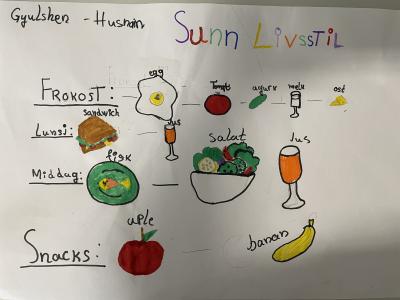 Gyulshen - Husnain
SUNN LIVSSTIL
egg
FROKOST: Tomat agurk melk ost
sandwich
Lunsj: Jus
Salat Jus
fisk
Middag:
aple
Snacks: banan